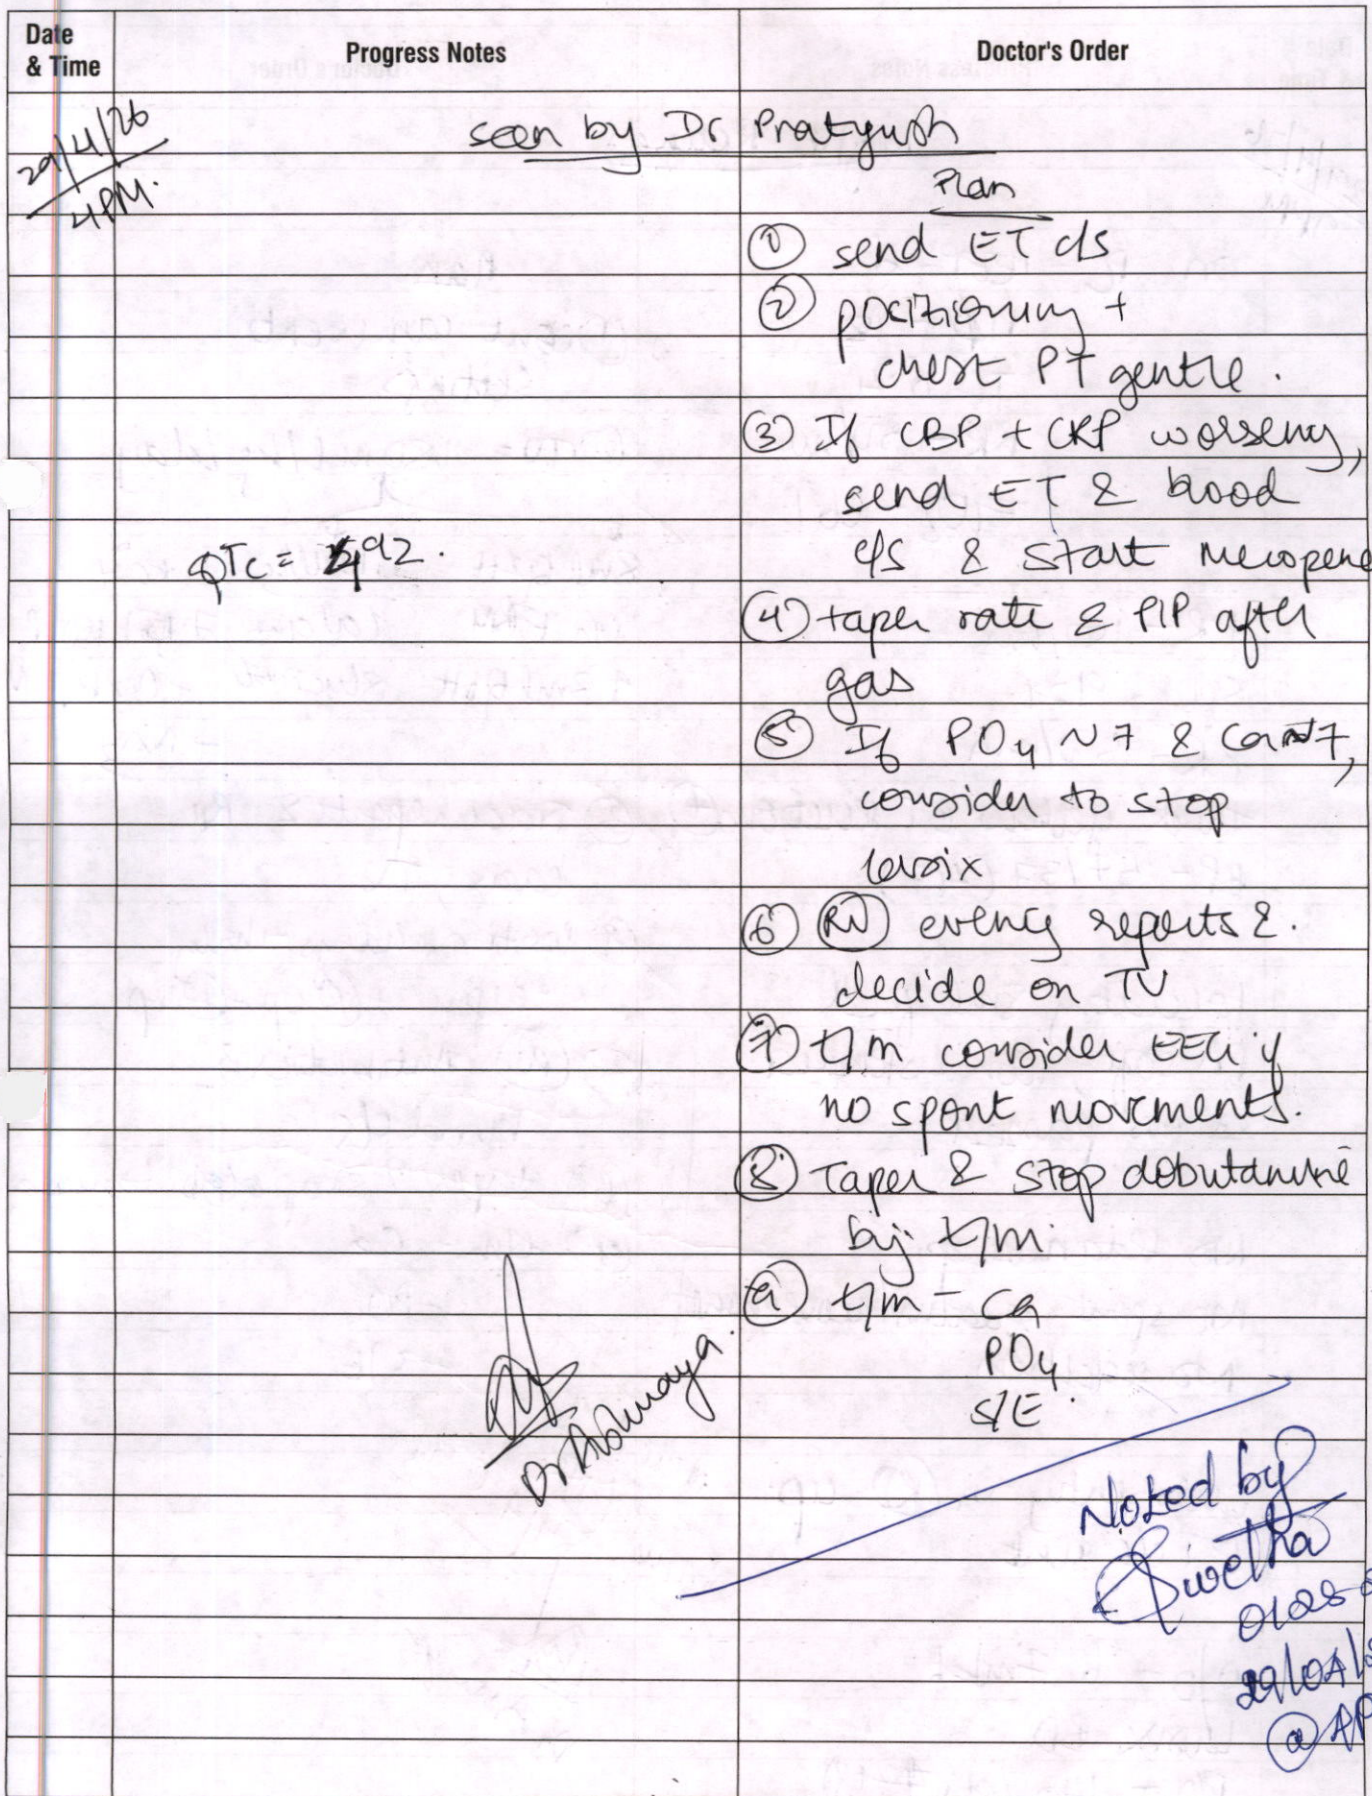 Date & Time
Progress Notes
Doctor's Order
29/4/26
4PM.
seen by Dr. Pratyush
Plan
① send ET c/s
② positioning +
chest PT gentle.
③ If CBP + CRP worseny,
send ET & blood
c/s & start Meropene
QTc = 492.
④ taper rate & PIP after
gas
⑤ If PO4 N7 & Ca N7,
consider to stop
lasix
⑥ RV evening reports &
decide on TV
⑦ t/m consider EEG if
no spont movements.
⑧ Taper & stop dobutamine
by t/m
⑨ t/m - Ca
PO4
S/E.
Dr Abhinaya.
Noted by
Swetha
01025
29/04/
@ 4P